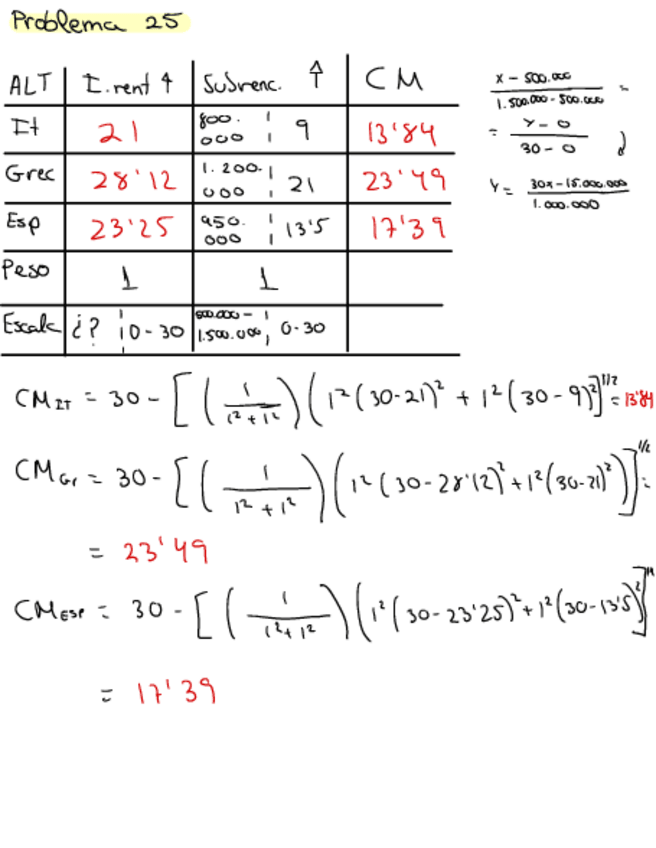 Problema 25
ALT I.rent ↑ Subvenc. ↑ CM
It 21 800.000 9 13'84
Grec 28'12 1.200.000 21 23'49
Esp 23'25 950.000 13'5 17'39
Peso 1 1
Escala ¿? 0-30 500.000-1.500.000 0-30
x - 500.000 / 1.500.000 - 500.000 =
= y - 0 / 30 - 0 ;
y = 30x - 15.000.000 / 1.000.000
CM IT = 30 - [(1 / 1² + 1²)(1²(30-21)² + 1²(30-9)²]^1/2 = 13'84
CM Gr = 30 - [(1 / 1² + 1²)(1²(30-28'12)² + 1²(30-21)²)]^1/2 =
= 23'49
CM ESP = 30 - [(1 / 1² + 1²)(1²(30-23'25)² + 1²(30-13'5)²]
= 17'39